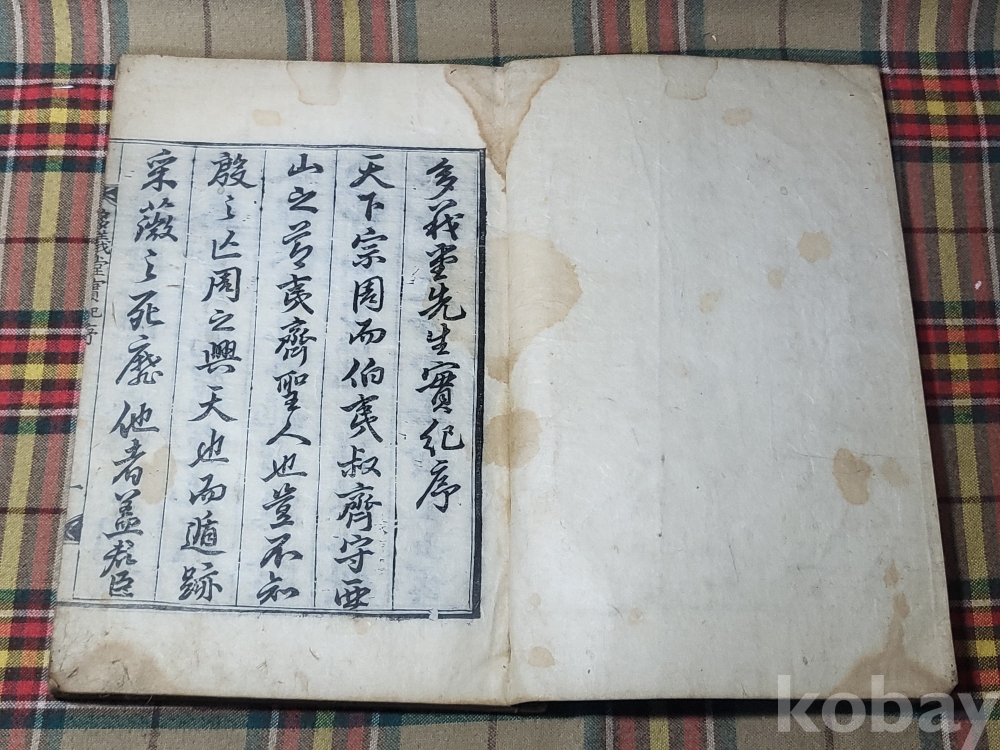 多義堂先生實紀序
天下宗周而伯夷叔齊守西
山之節夷齊聖人也豈不知
殷之亡周之興天也而遁跡
采薇之死靡他者蓋君臣
多義堂實紀序
一
kobay